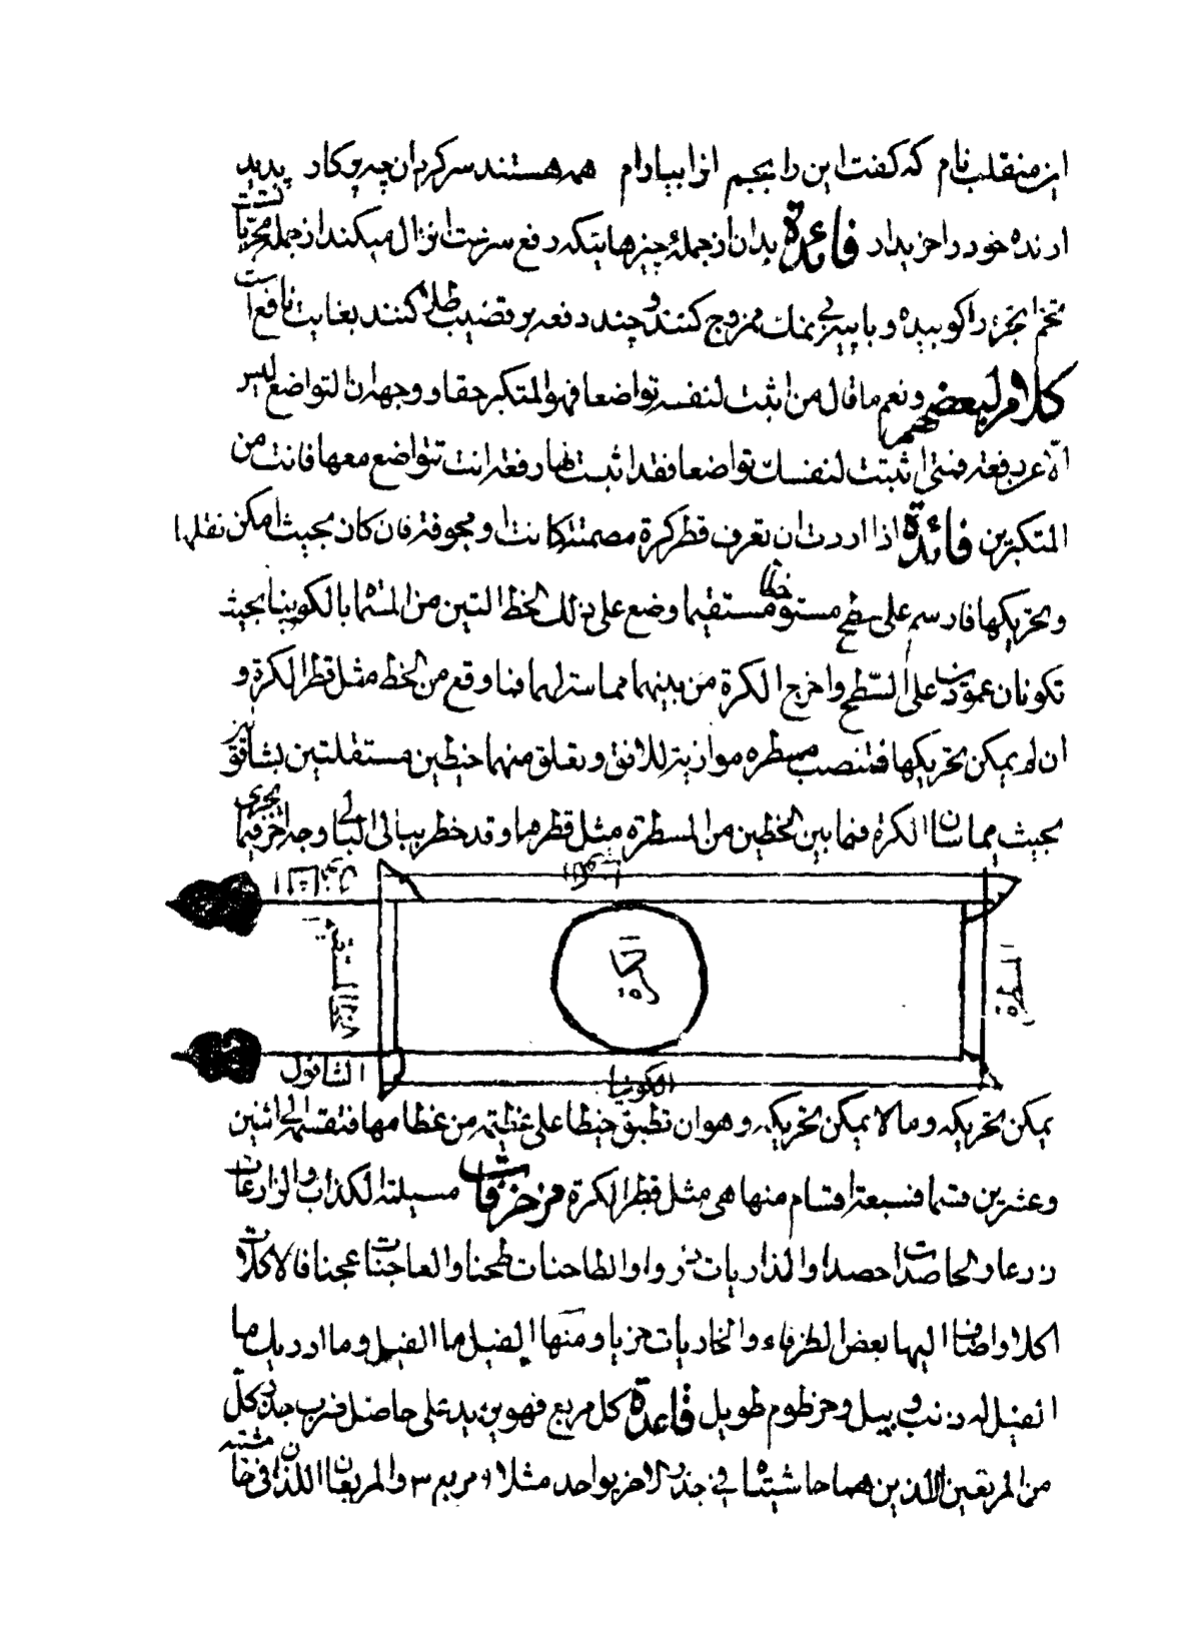 که گفت این را بجم همه هستند سرگردان چه پرگار پدید
ارنده خود را خریدار فائدة بدان از جملهٔ چیزهاییکه رفع سرعت انزال میکند از جمله مجربات
تخم انجره را کوبیده و با پیه بز نمک ممزوج کنند و چند دفعه بر قضیب طلا کنند بغایت نافع است
كلام لبعضهم ونعم ما قال من اثبت لنفسه تواضعا فهو المتكبر حقا و وجهه ان التواضع ليس
الا عن رفعة فمتى اثبتت لنفسك تواضعا فقد اثبت لها رفعة انت تتواضع معها فانت من
المتكبرين فائدة اذا اردت ان تعرف قطر كرة مصمتة كانت او مجوفة فان كان بحيث امكن نقلها
وتحريكها فارسم على سطح مستو خطا مستقيما وضع على ذلك الخط التين من المسماة بالكونيا بحيث
تكونان عمودين على السطح واخرج الكرة من بينهما مماسة لهما فما وقع من الخط مثل قطر الكرة و
ان لم يمكن تحريكها فتنصب مسطرة موازية للافق و تعلق منهما خيطين مستقلتين بشاقولين
بحيث يماسان الكرة فما بين الخطين من المسطرة مثل قطرها وقد خطر ببالى البالى وجه اخر فيما يجرى
الكونيا
الشاقول
الكونيا
الشاقول
يمكن تحريكه وما لا يمكن تحريكه وهو ان تطبق خيطا على عظيمة من عظامها فتقسمه الى اثنين
وعشرين قسما فسبعة اقسام منها هى مثل قطر الكرة مزخرفات مسيلمة الكذاب والزارعات
زرعا والحاصدات حصدا والذاريات ذروا والطاحنات طحنا والعاجنات عجنا فالاكلات
اكلا واضاف اليها بعض الظرفاء والخاريات خريا ومنها الفيل ما الفيل وما ادريك ما
الفيل له ذنب وبيل وخرطوم طويل قاعدة كل مربع فهو يزيد على حاصل ضرب جذر كل
من المربعين اللذين هما حاشيتاه فى جذر الاخر بواحد مثلا ٩ مربع ٣ والمربعان اللذان فى